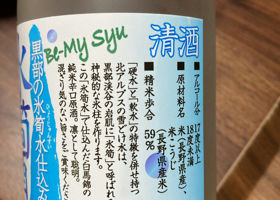 Be-My Syu
清酒
■アルコール分 17度以上
18度未満
■原材料名 米(長野県産)、
米こうじ
(長野県産米)
■精米歩合 59%
「硬水」と「軟水」の特徴を併せ持つ
北アルプスの雪どけ水は、
黒部渓谷の岩肌に「氷筍」と呼ばれ
神秘的な氷柱を作ります。
この「氷筍水」で仕込んだ白馬錦の
純米辛口原酒。凛として聡明。
混ざり気のない旨さをご賞味くださ
黒部の氷筍水仕込み
氷筍